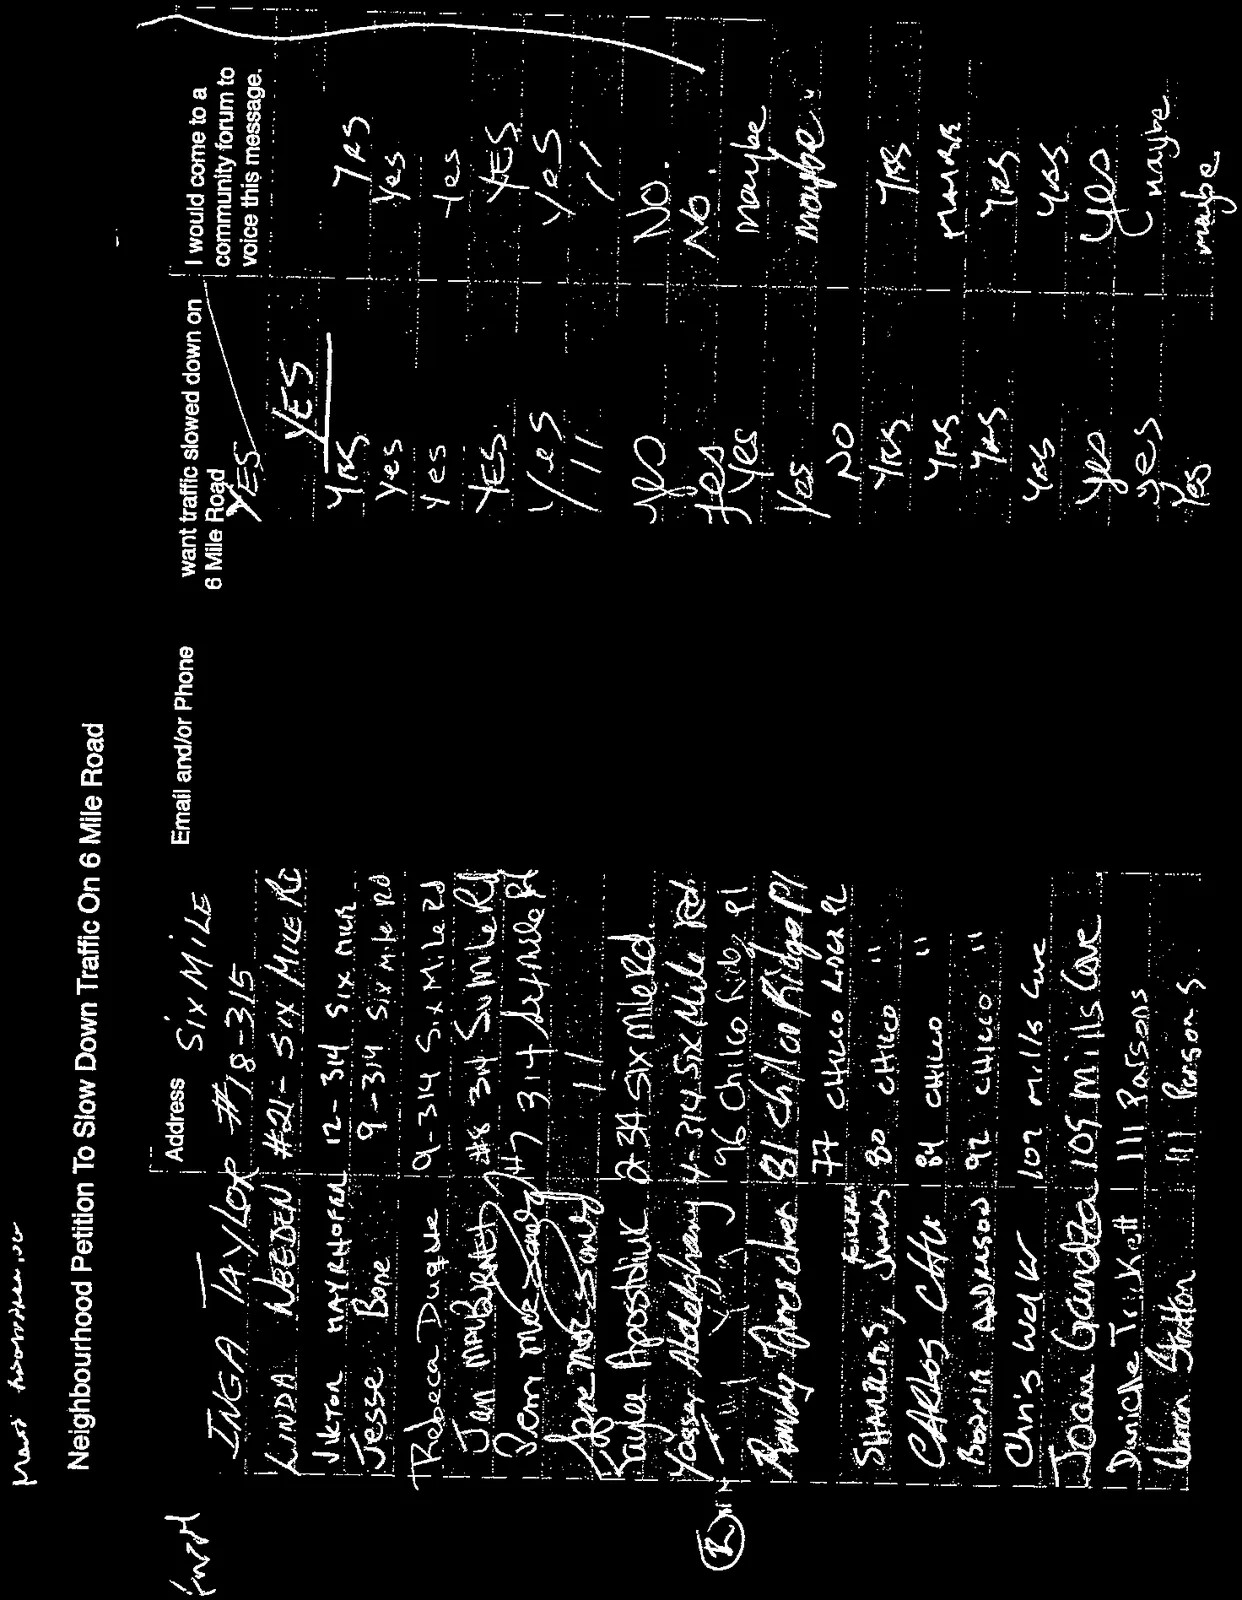 Neighbourhood Petition To Slow Down Traffic On 6 Mile Road
Address Email and/or Phone want traffic slowed down on 6 Mile Road I would come to a community forum to voice this message.
INGA TAYLOR #18-315 Six MiLE YES
LINDA NEEDEN #21- SIX MILE Rd YES
MAYRHOFER 12-314 SIX MILE YES YES
Jesse Bone 9-314 Six Mile Rd yes Yes
Rebeca Duque 9-314 Six Mile Rd yes yes
Jan #8 314 Six Mile Rd YES YES
#7 314 Sixmile Rd Yes YES
11 11 11
Kaylee Apostoliuk 2-314 Six Mile Rd yes No.
Yasser 4-314 Six Mile Rd. yes No.
96 Chilco Ridg Pl Yes maybe
Randy 81 Chilco Ridge Pl Yes maybe "
77 CHILCO RIDGE PL NO
James 80 CHILCO " YES YES
CARLOS 84 CHILCO " YES MAYBE
ANDERSON 92 CHILCO " YES YES
Chris Welk 107 mills cove YES YES
Joan Grandza 109 Mills Cove yes yes
Danielle Trickett 111 Parsons yes maybe
Stratton 111 Parsons Yes maybe